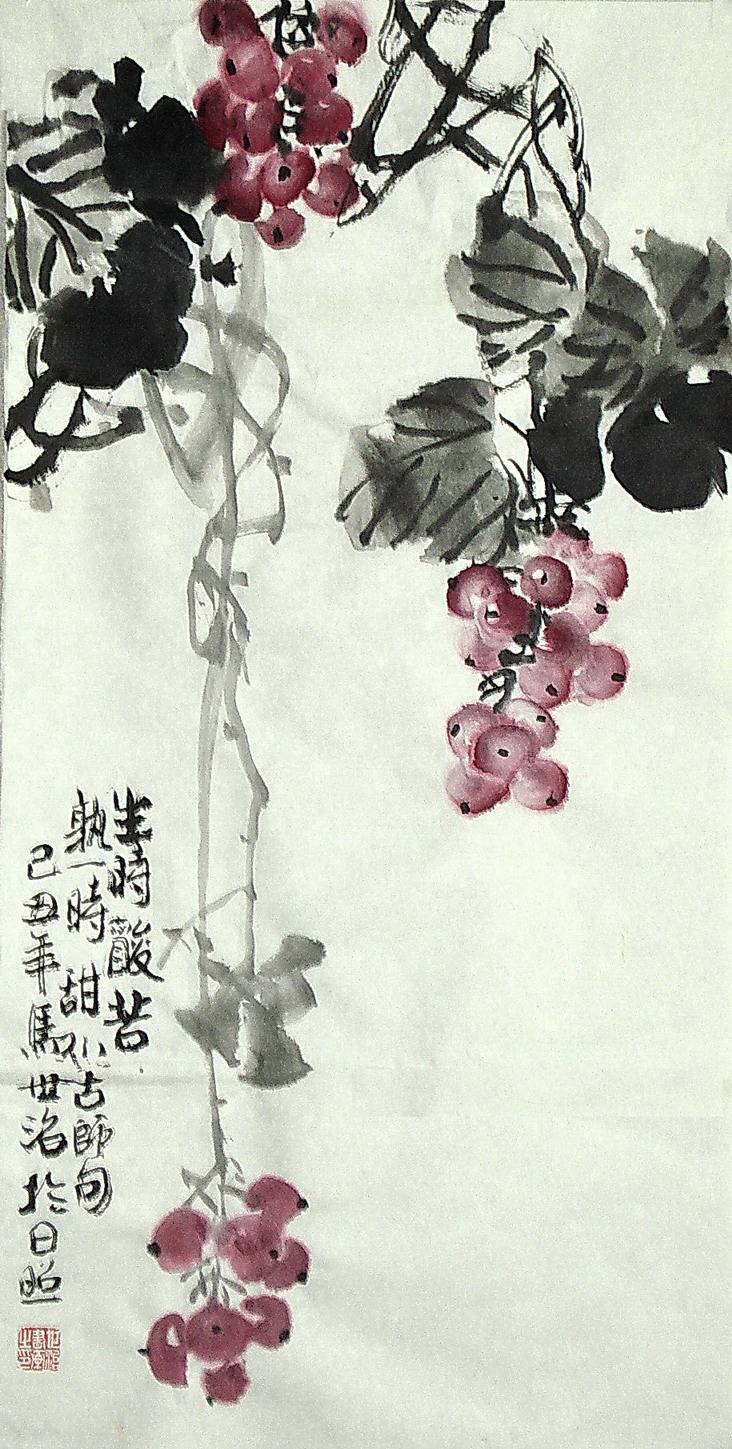 生時酸苦
熟一時甜仏古師句
己丑年馬世洺於日照